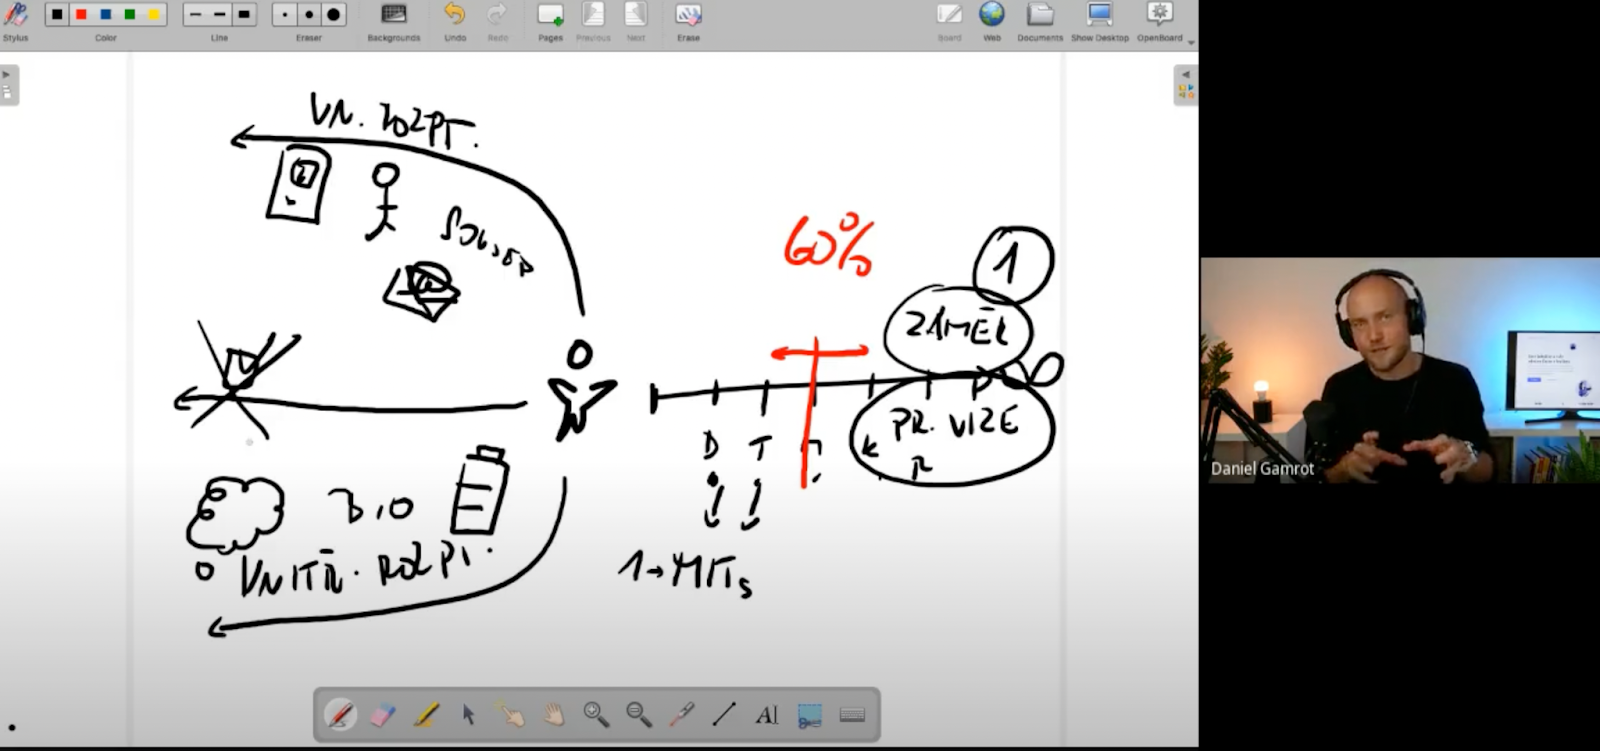 Stylus
Color
Line
Eraser
Backgrounds
Undo
Redo
Pages
Previous
Next
Erase
Board
Web
Documents
Show Desktop
OpenBoard
VN. ROZPT.
60%
1
ZÁMĚR
PR. VIZE
D T K R
BIO
VNITŘ. ROZPT.
1→MITs
Daniel Gamrot
AI